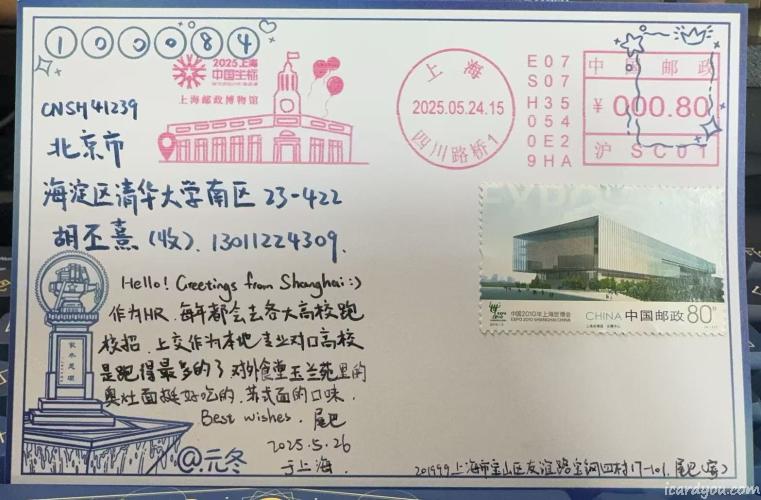 100084
2025上海
中国生肖
上海邮政博物馆
上海
2025.05.24.15
四川路桥1
E07
S07
H35
054
0E2
9HA
中国邮政
¥ 000.80
沪 SC01
CNSH41239
北京市
海淀区清华大学南区23-422
胡丕熹(收). 13011224309.
EXPO
中国2010年上海世博会
EXPO 2010 SHANGHAI CHINA
CHINA 中国邮政 80分
Hello! Greetings from Shanghai:)
作为HR,每年都会去各大高校跑
校招.上交作为本地专业对口高校
是跑得最多的了 对外食堂玉兰苑里的
奥灶面挺好吃的.苏式面的口味.
Best wishes. 尾巴
2025.5.26
于上海.
饮水思源
@.元冬
201999上海市宝山区友谊路宝钢四村17-101.尾巴(寄)
icardyou.com